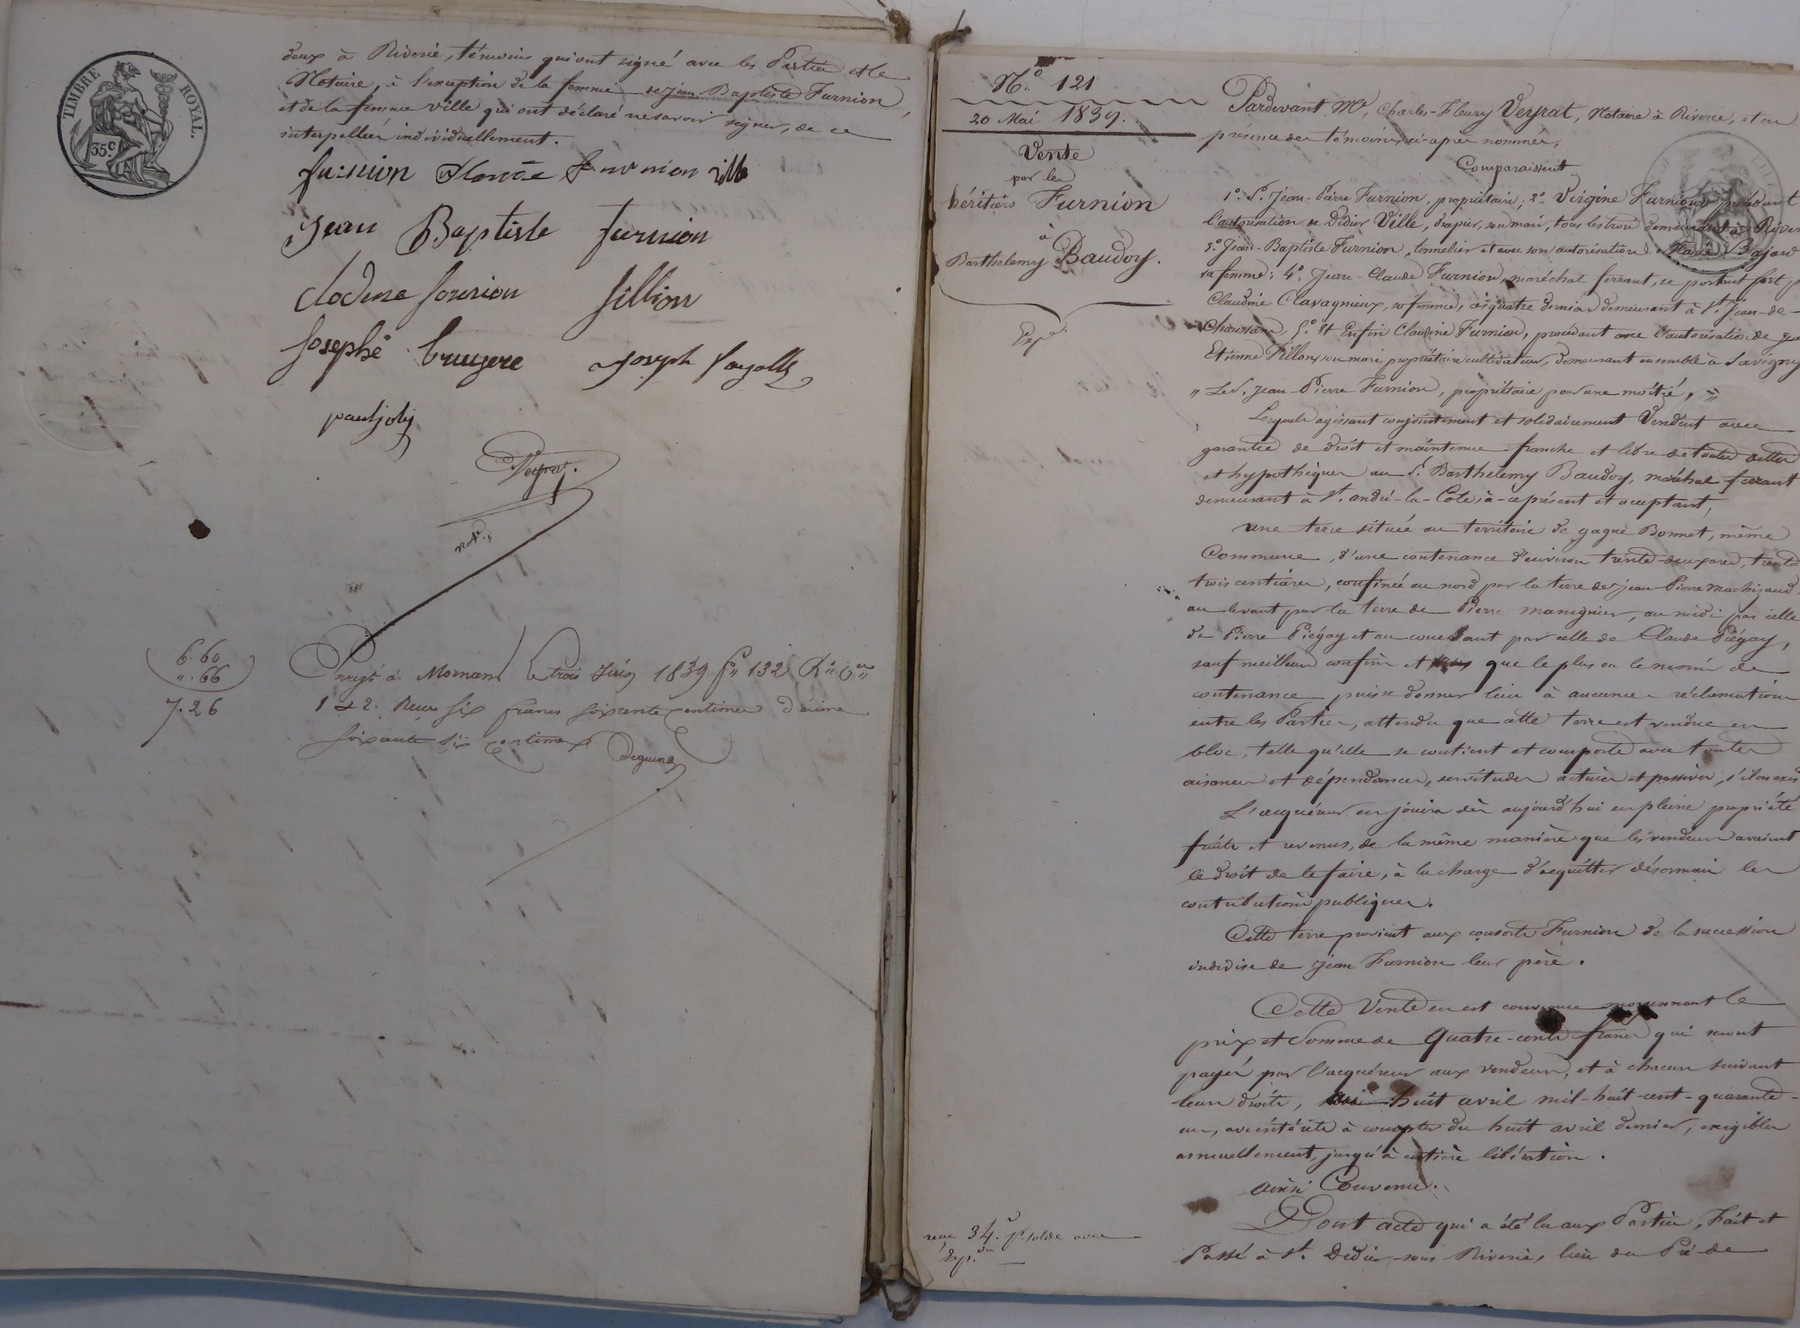 TIMBRE ROYAL.
35c
deux à Riverie, témoins qui ont signé avec les Parties et le
Notaire, à l'exception de la femme de Jean Baptiste Furnion,
et de la femme Ville qui ont déclaré ne savoir signer, de ce
interpellées individuellement.
furnion Claude furnion ville
Jean Baptiste furnion
clodine fournion fillion
Josephe bruyere Joseph fayolle
paul joly
Veyrat
not.
6.60
".66
7.26
Enregt. à Mornant le trois Juin 1839 f° 132
1 et 2. Reçu six francs soixante centimes décime
soixante six centimes
N° 121
20 Mai 1839.
Vente
par les
héritiers Furnion
à
Barthelemy Baudoy.
Exp.
Pardevant Me. Charles-Fleury Veyrat, Notaire à Riverie, et en
présence des témoins ci-après nommés,
Comparaissent
1° Sr. Jean-Pierre Furnion, propriétaire; 2° Virginie Furnion procédant
l'autorisation de Didier Ville, drapier, son mari, tous les trois demeurant à River
3° Jean-Baptiste Furnion, tonnelier et avec son autorisation Bajard
sa femme; 4° Jean-Claude Furnion, maréchal ferrant, se portant fort p
Claudine Clavagnieux, sa femme, ces quatre derniers demeurant à St. Jean-de-
Chaussan, 5° Et Enfin Claudine Furnion, procédant avec l'autorisation de
Etienne Fillon, son mari, propriétaire cultivateur, demeurant ensemble à Savigny
" Le S. Jean-Pierre Furnion, propriétaire pour une moitié, "
Lesquels agissant conjointement et solidairement Vendent avec
garantie de droit et maintenue franche et libre de toutes dettes
et hypothèques au Sr. Barthelemy Baudoy, maréchal ferrant
demeurant à St. andré-la-Cote, à ce présent et acceptant,
une terre située au territoire de gagne Bonnet, même
Commune, d'une contenance d'environ trente-deux ares, trente
trois centiares, confinée au nord par la terre de Jean Pierre
au levant par la terre de Pierre manignier, au midi par celle
de Pierre Piégay et au couchant par celle de Claude Piégay,
sauf meilleurs confins et sans que le plus ou le moins de
contenance puisse donner lieu à aucune réclamation
entre les Parties, attendu que cette terre est vendue en
bloc, telle qu'elle se contient et comporte avec toutes
aisances et dépendances, servitudes actives et passives, s'il en exis
L'acquéreur en jouira dès aujourd'hui en pleine propriété
fruits et revenus, de la même manière que les vendeurs avaient
le droit de le faire, à la charge d'acquitter désormais les
contributions publiques.
Cette terre provient aux consorts Furnion de la succession
indivise de Jean Furnion leur père.
Cette Vente en est convenue moyennant le
prix et somme de Quatre-cents francs qui seront
payés par l'acquéreur aux vendeurs, et à chacun suivant
leurs droits, huit avril mil-huit-cent-quarante-
un, avec intérêts à compter du huit avril dernier, exigibles
annuellement, jusqu'à entière libération.
ainsi Convenu.
Dont acte qui a été lu aux Parties, Fait et
Passé à St. Didier-sous Riverie, lieu du Pré-de
recu 34. pr solde avec
Exp.on